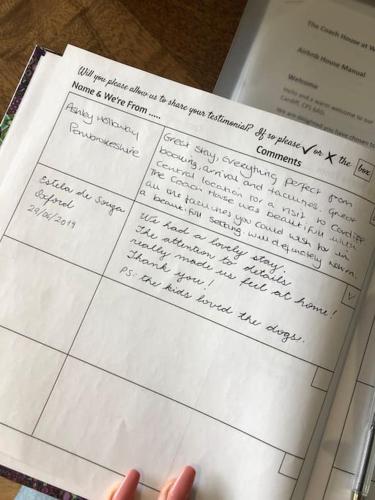 The Coach House at W
Airbnb House Manual
Welcome
Hello and a warm welcome to our
Cardiff, CF5 6AD.
We are delighted you have chosen to
Will you please allow us to share your testimonial? If so please ✓ or X the box
Name & We're From .....
Comments
Ashby Holloway
Pembrokeshire
Great stay, everything perfect from
booking, arrival and facilities. Great
central location for a visit to Cardiff.
The Coach House was beautiful with
all the facilities you could wish for in
a beautiful setting will definitely return.
Estela de
Oxford
29/06/2019
We had a lovely stay.
The attention to details
really made us feel at home!
Thank you!
PS: the kids loved the dogs.